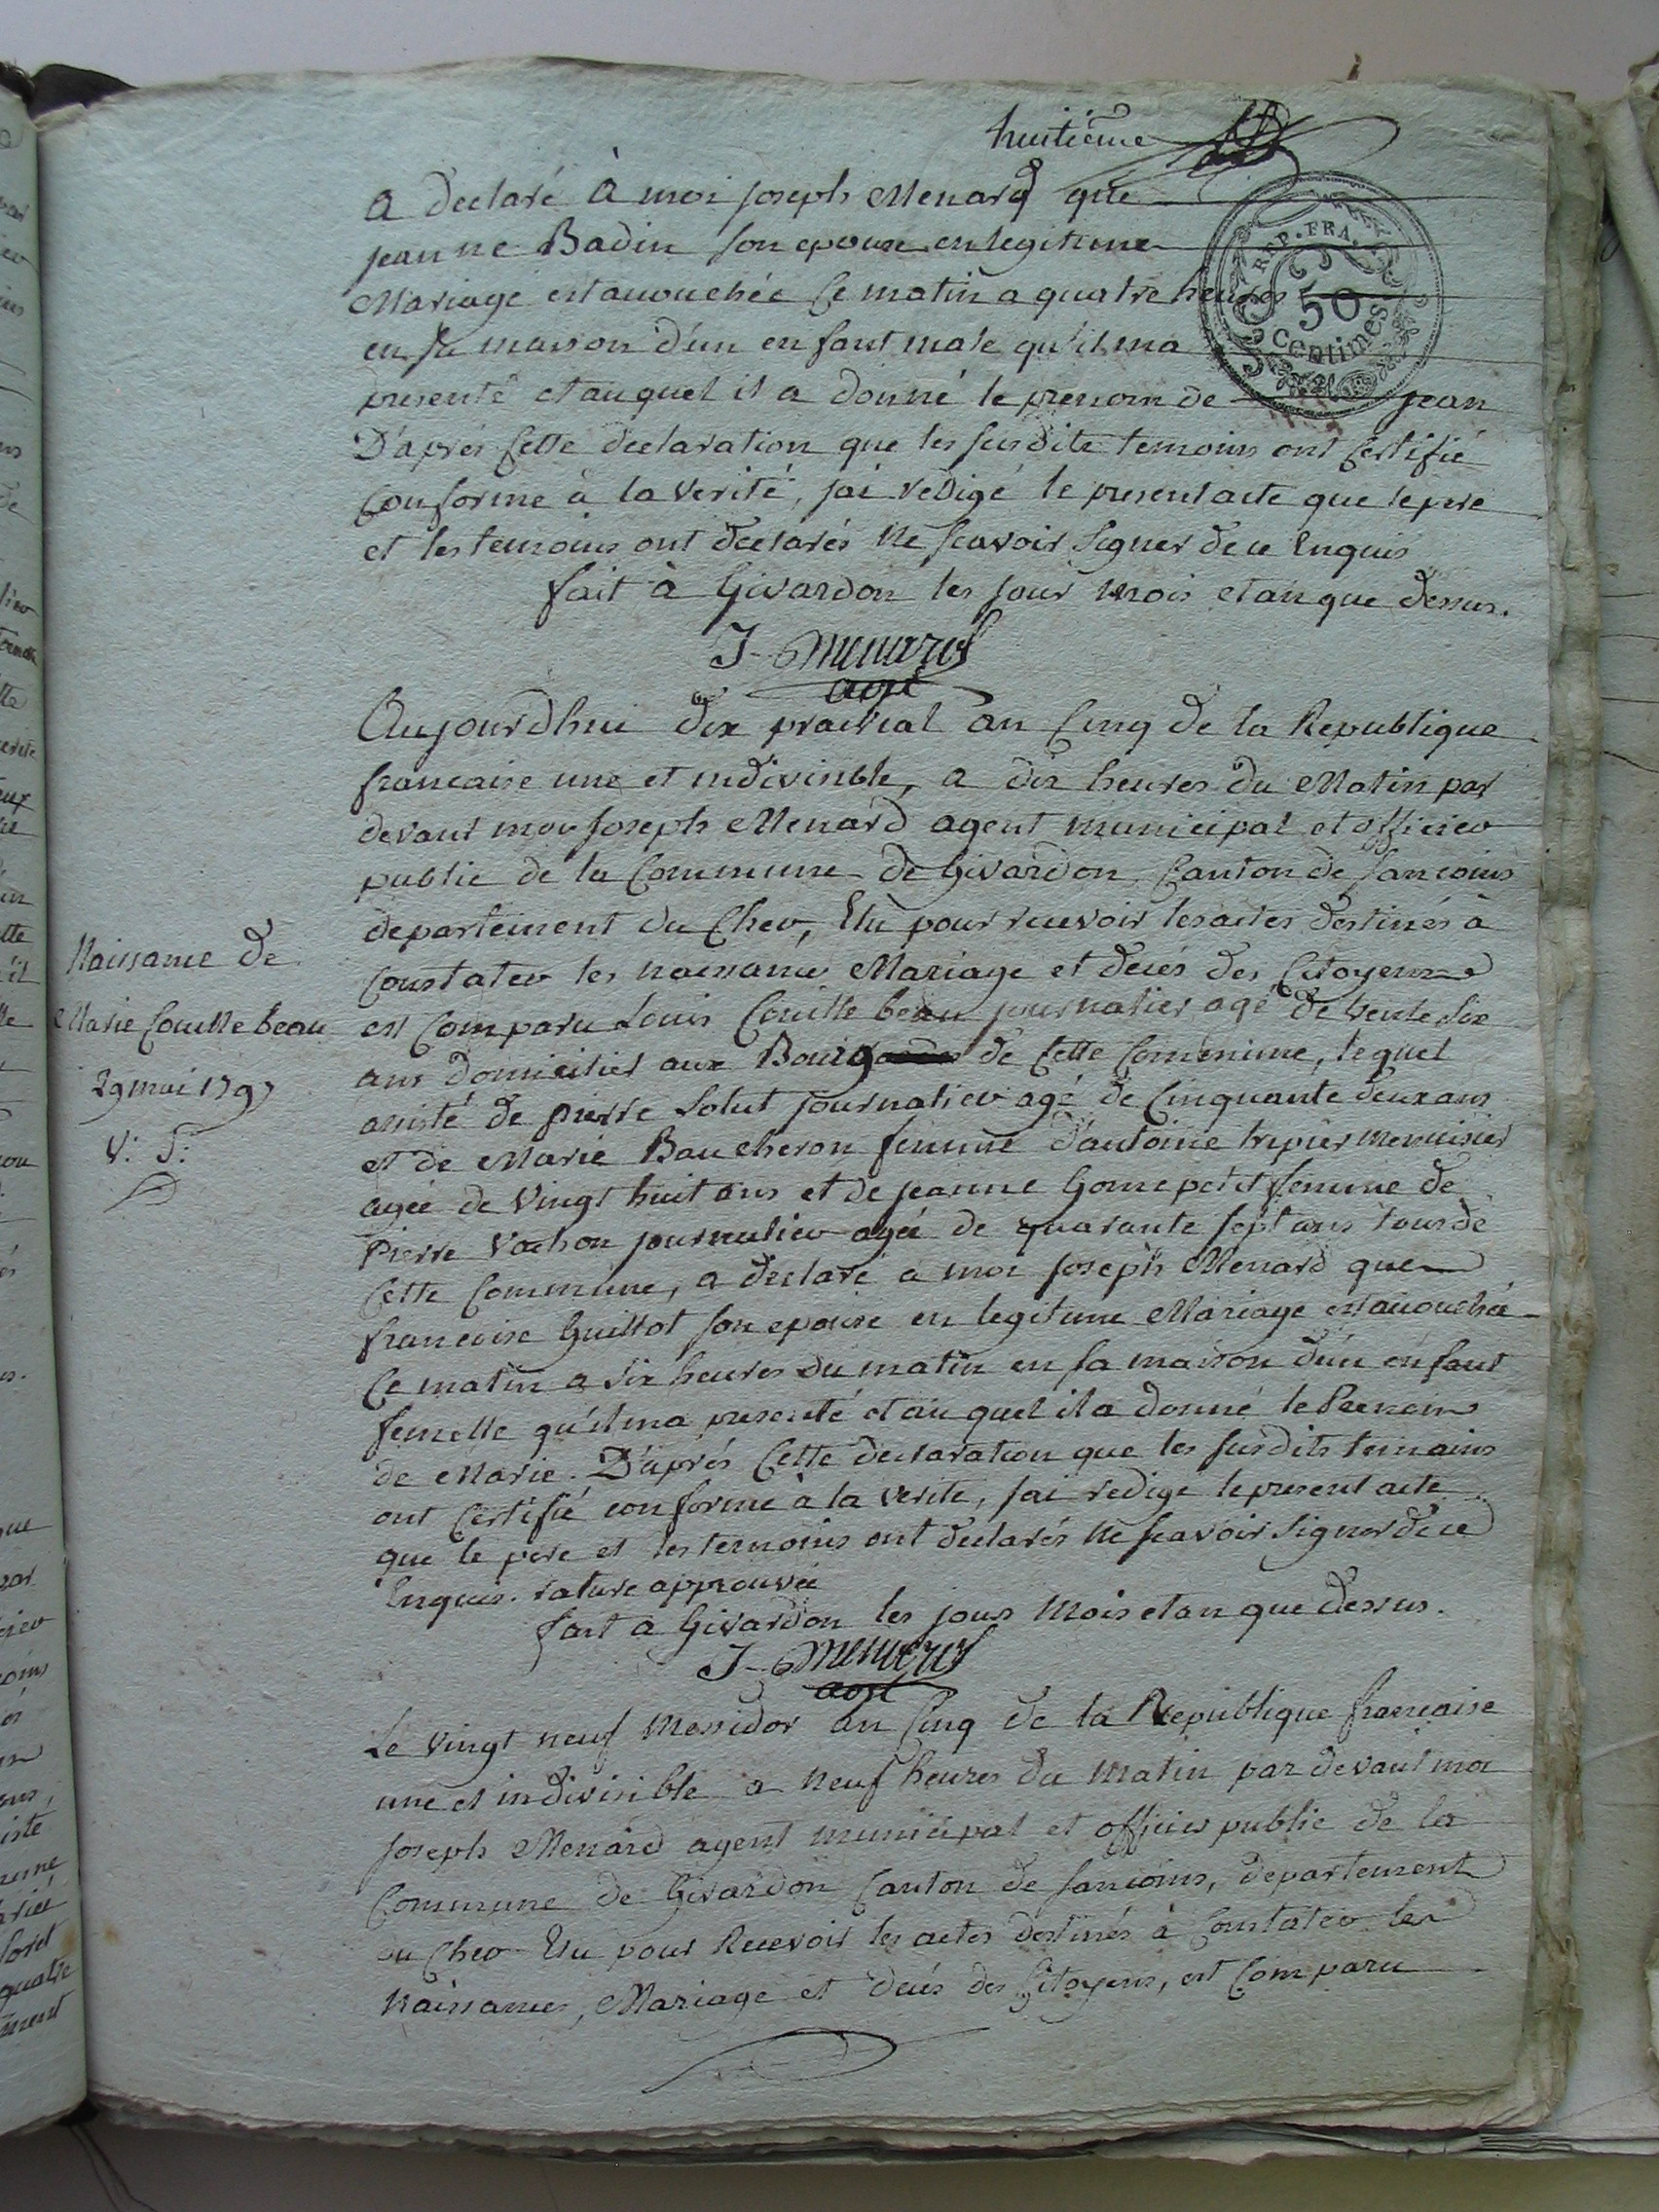 huitiéme
a declaré à moi joseph Menard que
jeanne Badin son epouse en legitime
Mariage est accouchée Ce matin a quatre heures
en sa maison d'un enfant male qu'il ma
presenté et auquel il a donné le prenom de jean
D'aprés Cette declaration que les susdits temoins ont Certifié
Conforme à la Verité, jai redigé le present acte que le pere
et les temoins ont declarés Ne scavoir Signer de ce Enquis
fait à Givardon les jour mois et an que dessus.
J. Menard
agt
REP. FRA.
50
Centimes
Aujourdhui dix prairial an Cinq de la Republique
francaise une et indivisible, a dix heures du Matin par
devant moi Joseph Menard agent municipal et officier
public de la Commune de Givardon, Canton de Sancoins
departement du Cher, Elu pour recevoir les actes destinés à
Constater les naissances Mariage et decés des Citoyens
est Comparu Louis Couillebeau journalier agé de trente six
ans domicilier aux Bourg de Cette Commune, lequel
assisté de pierre Solut journalier agé de Cinquante deux ans
et de Marie Baucheron femme d'antoine tripier menuisier
agée de Vingt huit ans et de jeanne Gome petit femme de
Pierre Vachon journalier agée de quarante sept ans tous de
Cette Commune, a declaré a moi joseph Menard que
francoise Guillot son epouse en legitime Mariage est accouchée
Ce matin a six heures du matin en sa maison d'un enfant
femelle qu'il ma presenté et au quel il a donné le Prenom
de Marie. D'aprés Cette declaration que les susdits temoins
ont Certifié conforme à la verite, jai redige le present acte
que le pere et les temoins ont declarés Ne scavoir Signer de ce
Enquis. rature approuvée
fait a Givardon les jour Mois et an que Dessus.
J. Menard
agt
Naissance de
Marie Couillebeau
29 mai 1797
V. S:
Le Vingt neuf Messidor an Cinq de la Republique francaise
une et indivisible a Neuf heures du Matin par devant moi
Joseph Menard agent municipal et officier public de la
Commune de Givardon Canton de Sancoins, departement
du Cher Elu pour Recevoir les actes destinés à Constater les
Naissances, Mariage et decés des Citoyens, est Comparu